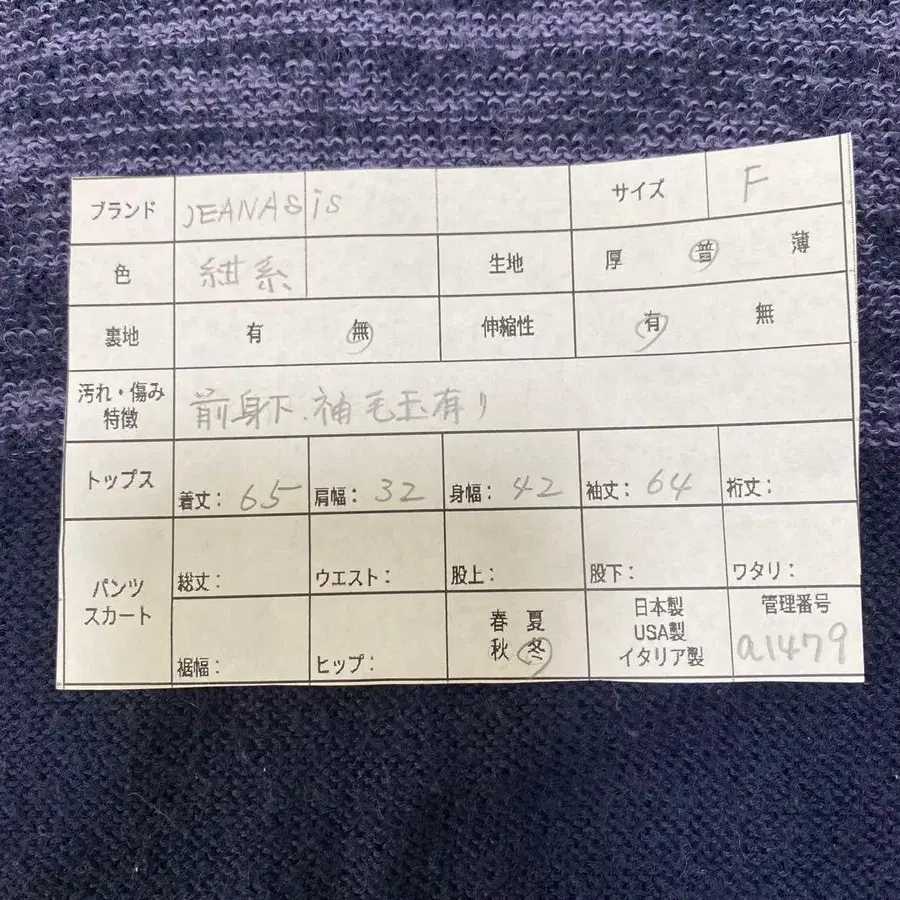 ブランド JEANASiS サイズ F
色 紺系 生地 厚 普 薄
裏地 有 無 伸縮性 有 無
汚れ・傷み
特徴 前身下、袖毛玉有り
トップス 着丈: 65 肩幅: 32 身幅: 42 袖丈: 64 裄丈:
パンツ
スカート 総丈: ウエスト: 股上: 股下: ワタリ:
裾幅: ヒップ: 春 夏
秋 冬
日本製
USA製
イタリア製
管理番号
a1479